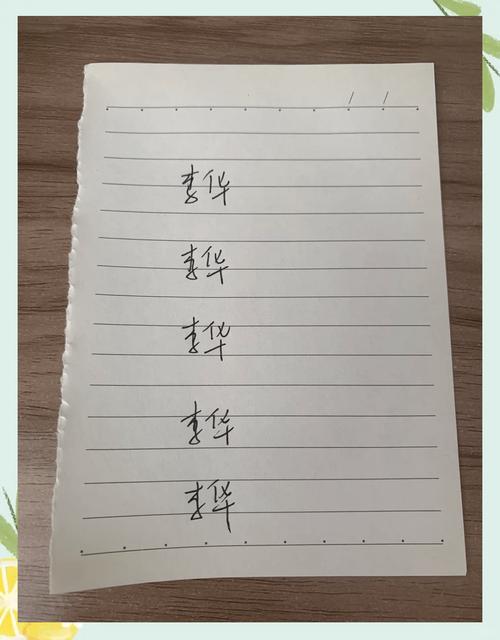 李华
李华
李华
李华
李华